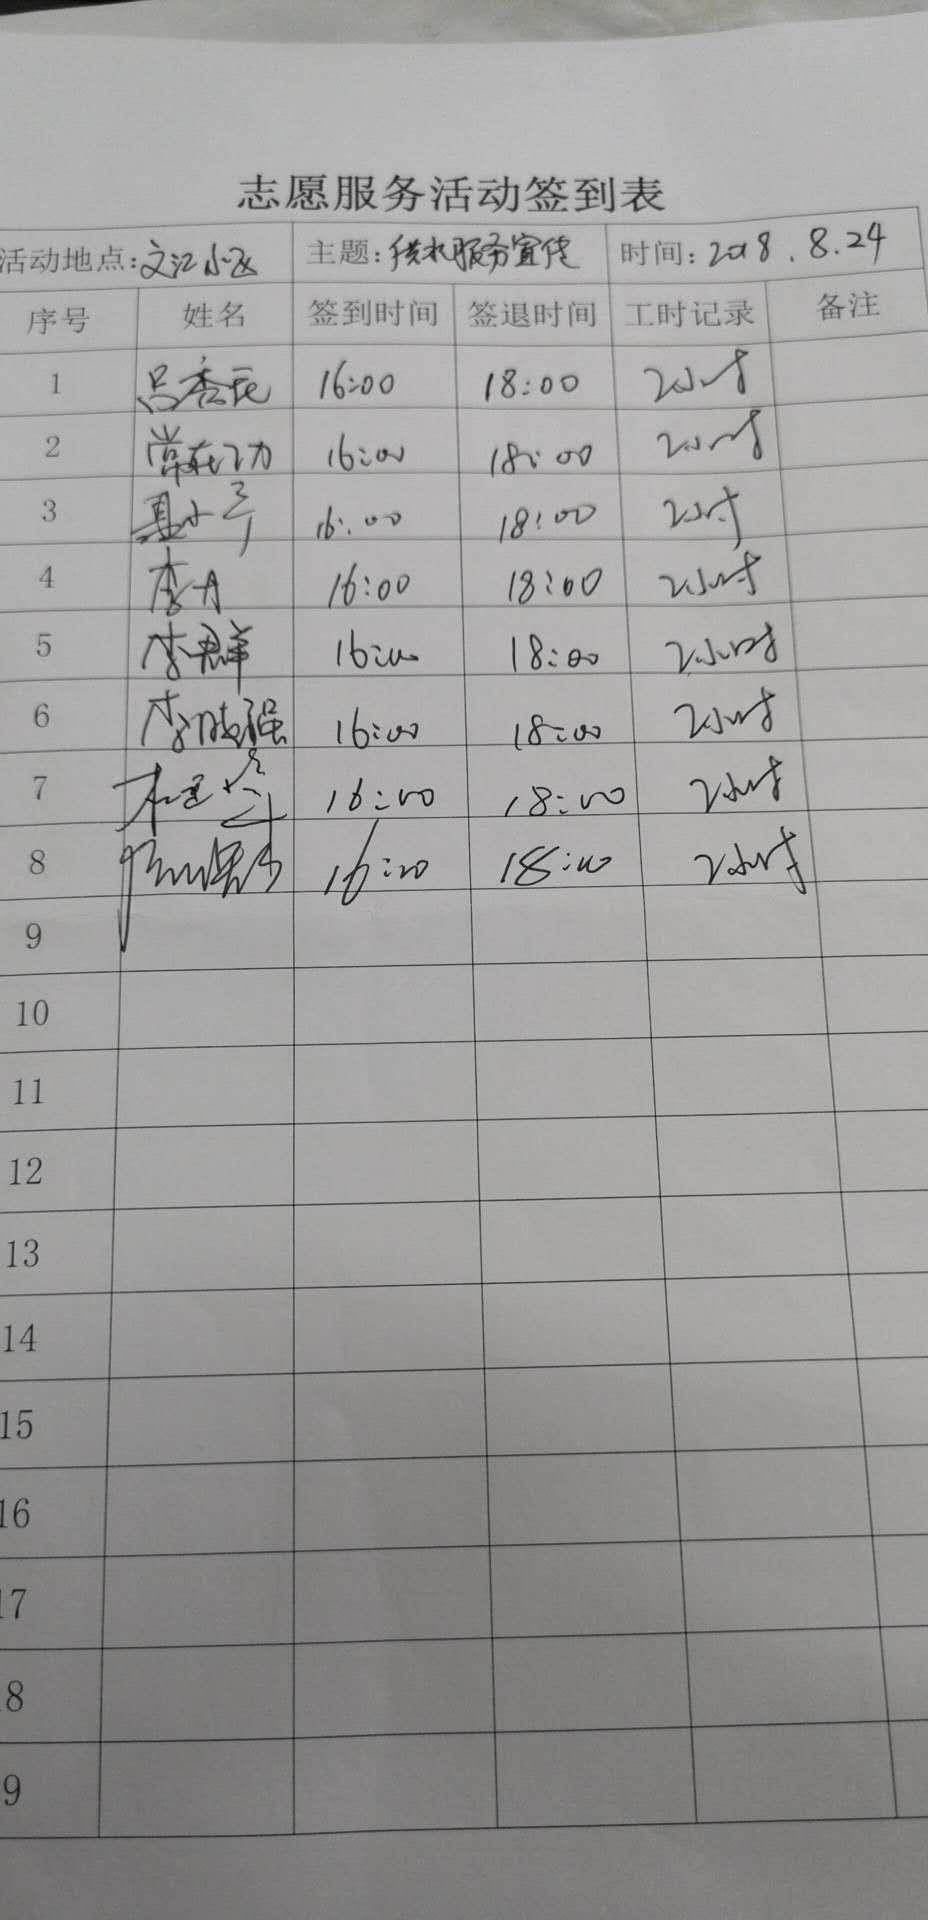 志愿服务活动签到表
活动地点:文江小区 主题:供水服务宣传 时间:2018.8.24
序号 姓名 签到时间 签退时间 工时记录 备注
1 16:00 18:00 2小时
2 常在功 16:00 18:00 2小时
3 16:00 18:00 2小时
4 李丹 16:00 18:00 2小时
5 李群 16:00 18:00 2小时
6 李晓强 16:00 18:00 2小时
7 16:00 18:00 2小时
8 16:00 18:00 2小时
9
10
11
12
13
14
15
16
17
8
9